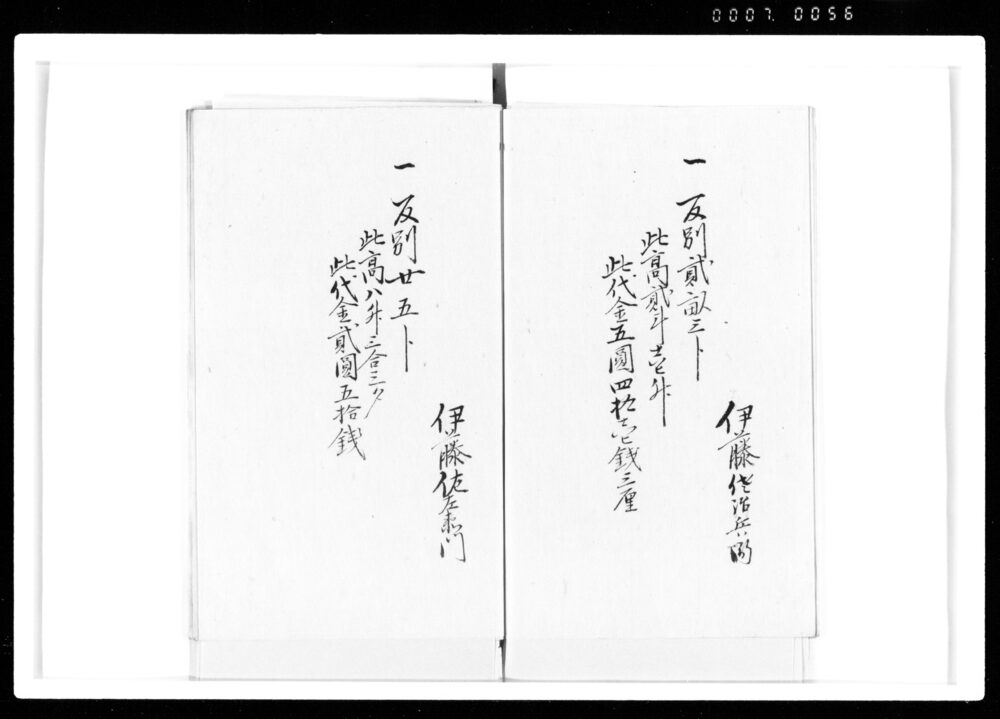 伊藤佐治兵衛
一 反別貳畝三卜
此高貳斗壱升
此代金五圓四拾壱銭三厘
伊藤佐左衛門
一 反別廿五卜
此高八升三合三夕
此代金貳圓五拾銭
0007. 0056